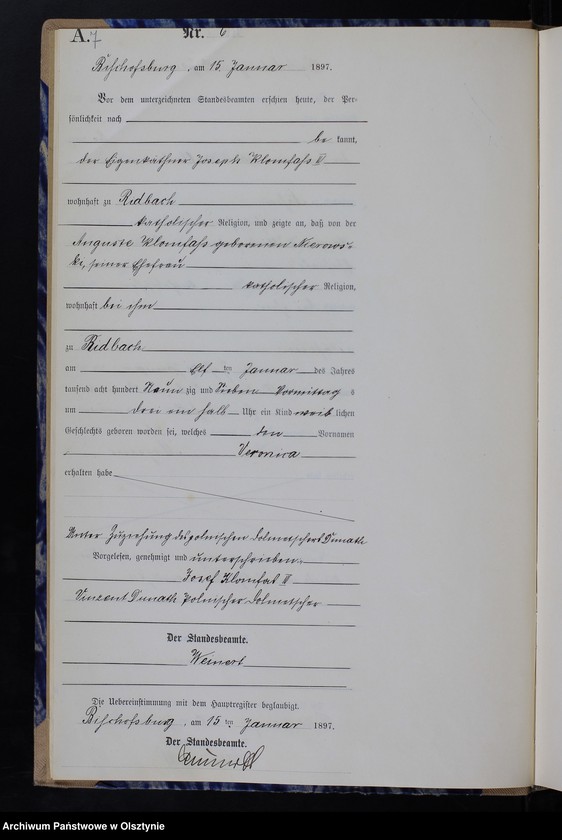 A.7 Nr. 6
Bischofsburg, am 15. Januar 1897.
Vor dem unterzeichneten Standesbeamten erschien heute, der Per-
sönlichkeit nach
be kannt,
der Eigenkäthner Joseph Klomfaß II
wohnhaft zu Ridbach
katholischer Religion, und zeigte an, daß von der
Auguste Klomfaß geborenen Nierows-
ki, seiner Ehefrau
katholischer Religion,
wohnhaft bei ihm
zu Ridbach
am Elf ten Januar des Jahres
tausend acht hundert Neun zig und Sieben Vormittag s
um drei ein halb Uhr ein Kind weib lichen
Geschlechts geboren worden sei, welches den Vornamen
Veronica
erhalten habe
Unter Zuziehung des polnischen Dolmetschers Dunath
Vorgelesen, genehmigt und unterschrieben.
Josef Klomfas II
Vinzent Dunath polnischer Dolmetscher
Der Standesbeamte.
Weinert
Die Uebereinstimmung mit dem Hauptregister beglaubigt.
Bischofsburg, am 15 ten Januar 1897.
Der Standesbeamte.
Archiwum Państwowe w Olsztynie